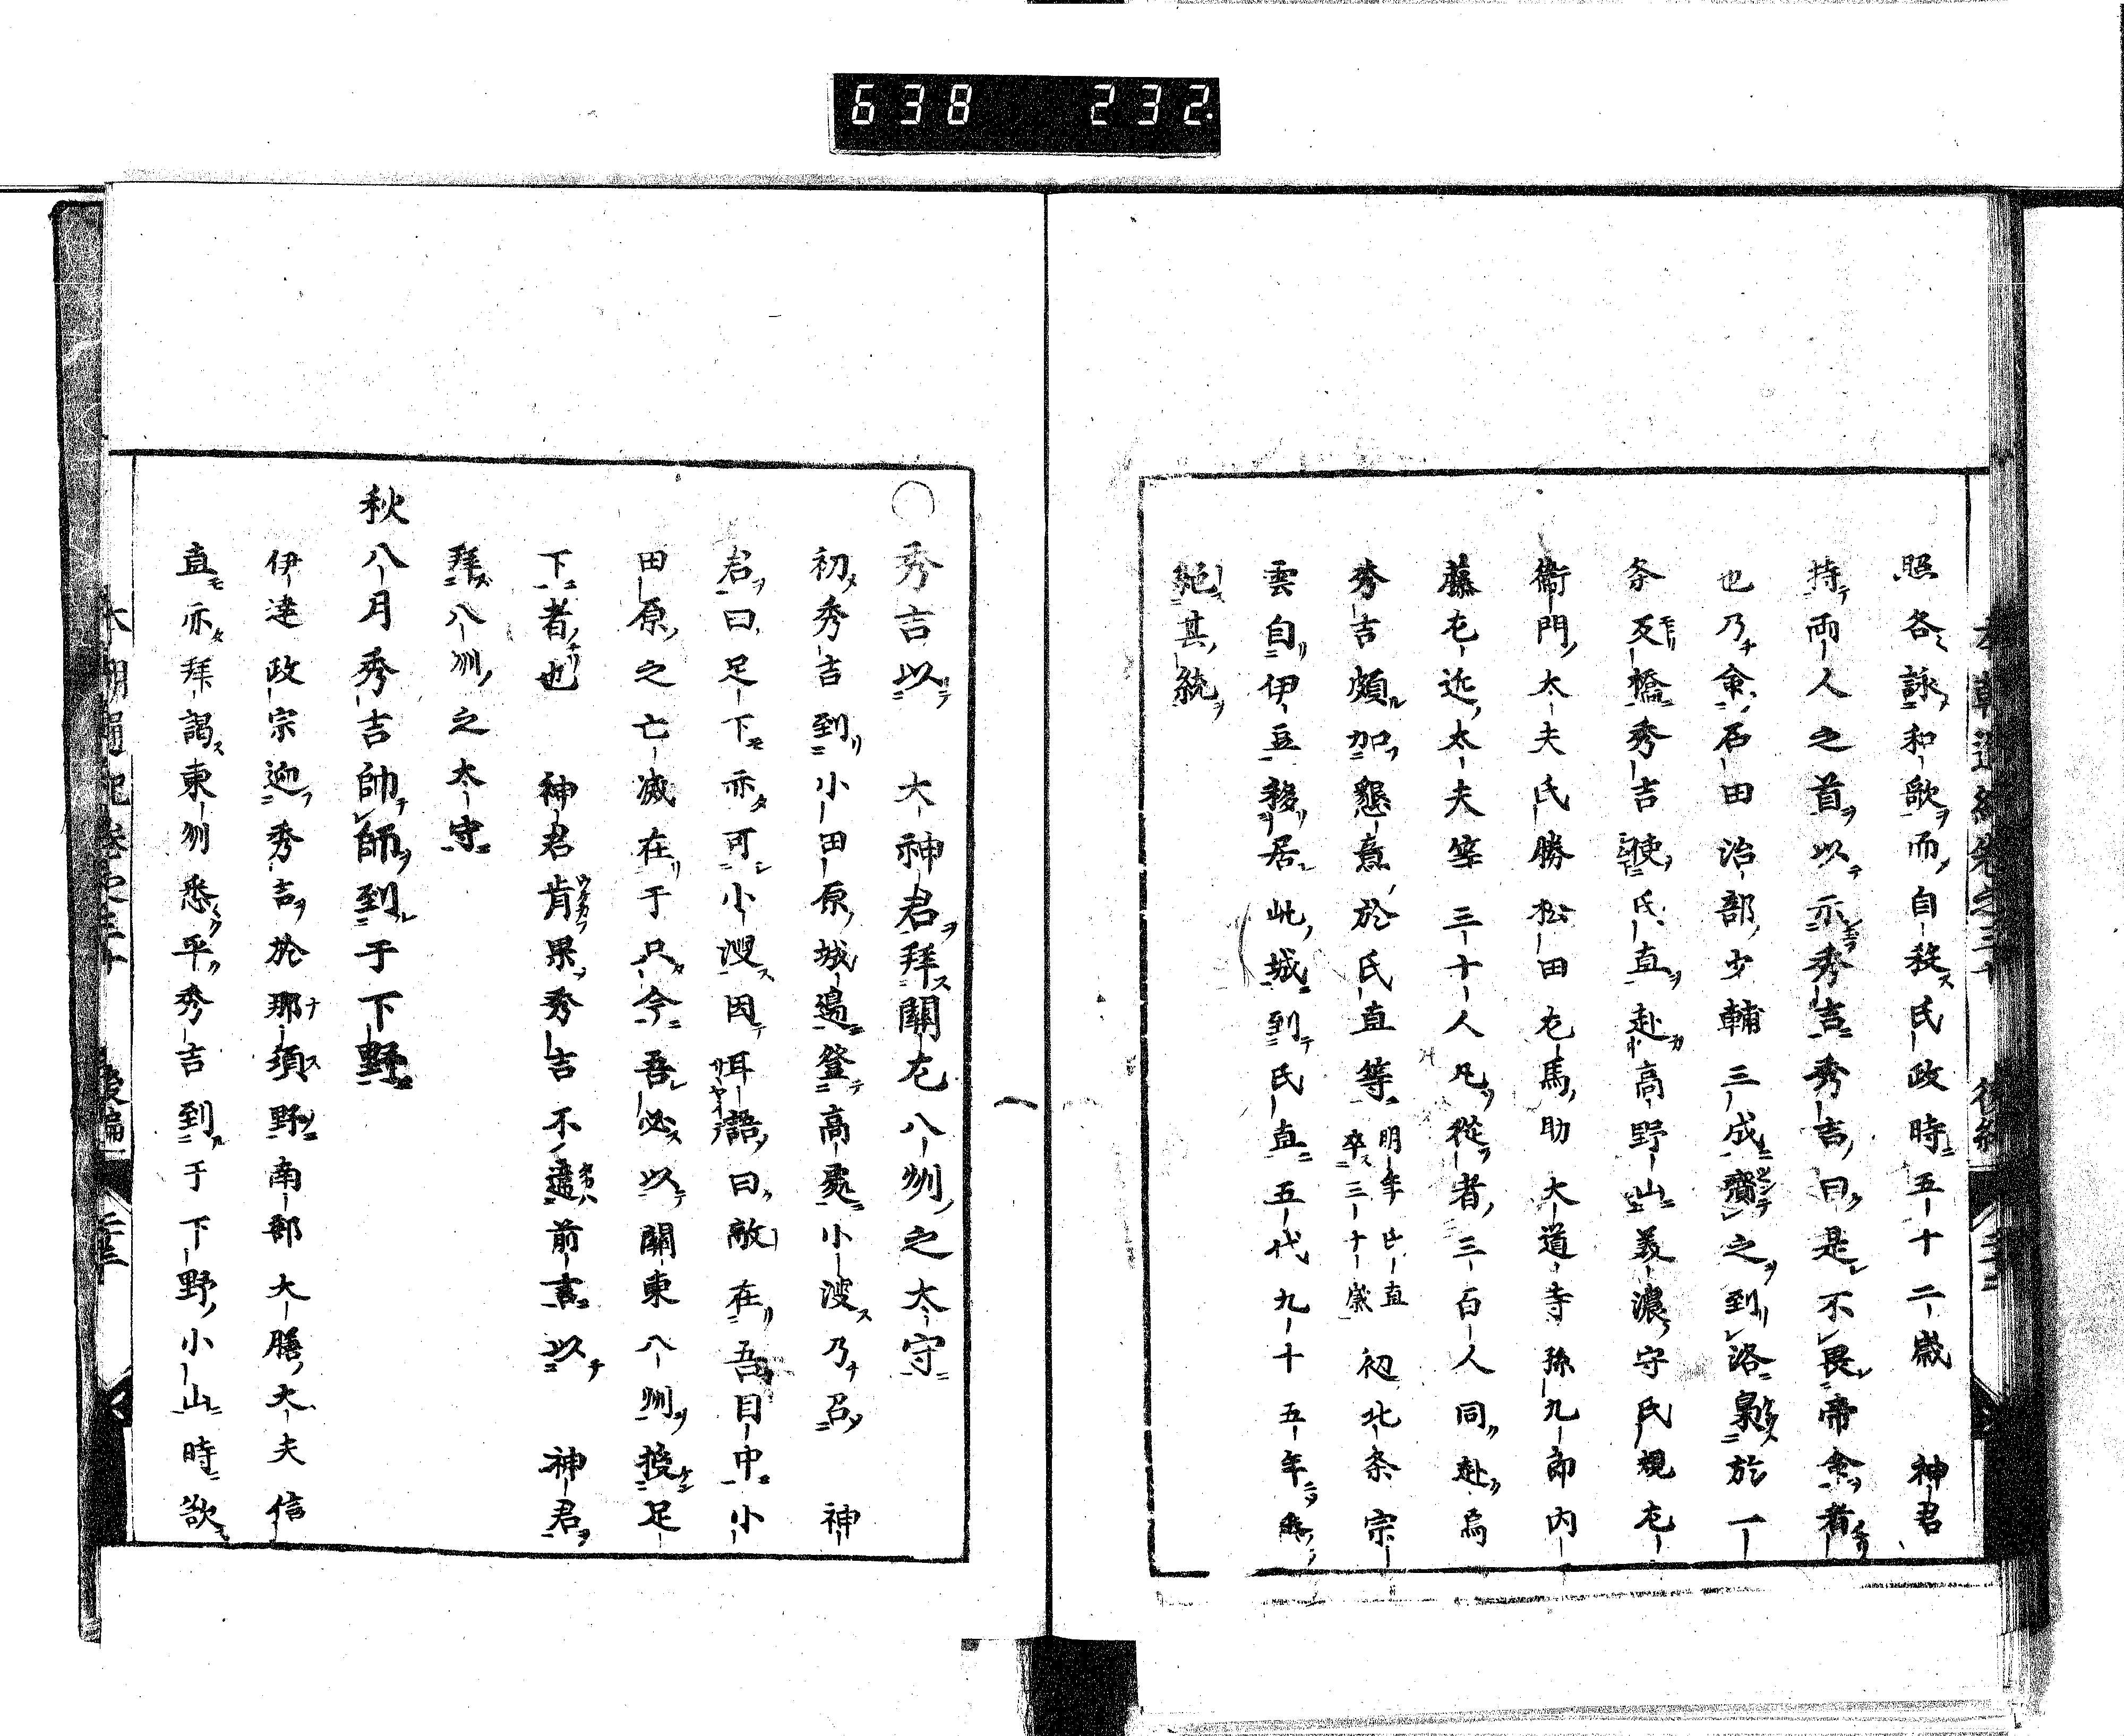 638 232
照各詠和歌而自殺氏政時五十二歳 神君
持両人之首以示秀吉秀吉曰是不畏帝命者
也乃命石田治部少輔三成齎之到洛梟於一
条反橋秀吉使氏直赴高野山美濃守氏規左
衞門太夫氏勝松田左馬助大道寺孫九郎内
藤左近太夫等三十人凡從者三百人同赴焉
秀吉頗加懇意於氏直等明年氏直卒三十歳初北条宗
雲自伊豆移居此城到氏直五代九十五年
絶其統
○秀吉以 大神君拜關左八州之太守
初秀吉到小田原城邉登高処小溲乃召 神
君曰足下亦可小溲因耳語曰敵在吾目中小
田原之亡滅在于只今吾必以關東八州授足
下者也 神君肯果秀吉不違前言以 神君
拜八州之太守
秋八月秀吉帥師到于下野
伊達政宗迎秀吉於那須野南部大膳大夫信
直亦拜謁東州悉平秀吉到于下野小山時欲